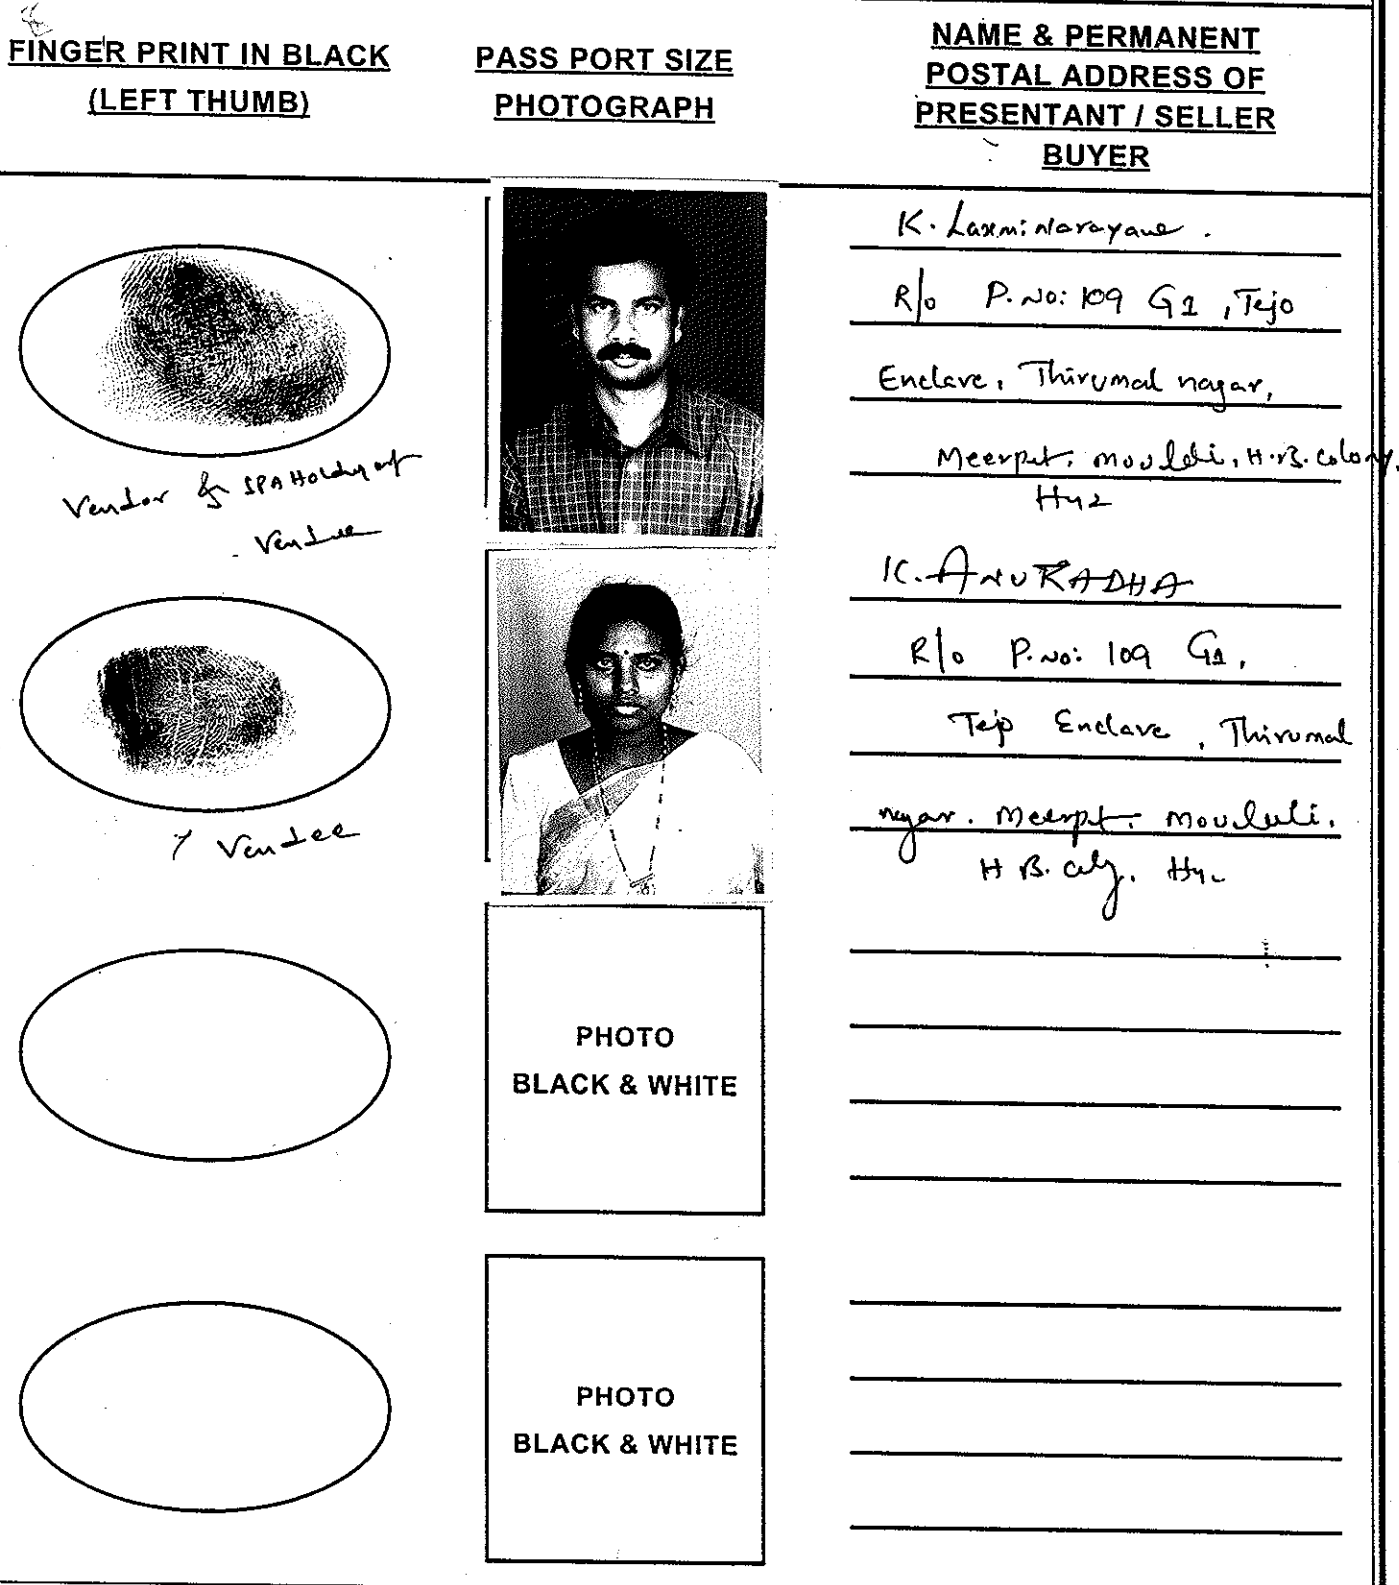 FINGER PRINT IN BLACK
(LEFT THUMB)
PASS PORT SIZE
PHOTOGRAPH
NAME & PERMANENT
POSTAL ADDRESS OF
PRESENTANT / SELLER
BUYER
K. Laxmi Narayana.
R/o P.No: 109 G1, Tejo
Enclave, Thirumal nagar,
Meerpet, mouldi, H.B. colony,
Hyz
Vendor & SPA Holder of
Vendee
K. ANURADHA
R/o P.No: 109 G1,
Tejo Enclave, Thirumal
nagar. Meerpet. Moululi.
H B. coly. Hy
Vendee
PHOTO
BLACK & WHITE
PHOTO
BLACK & WHITE